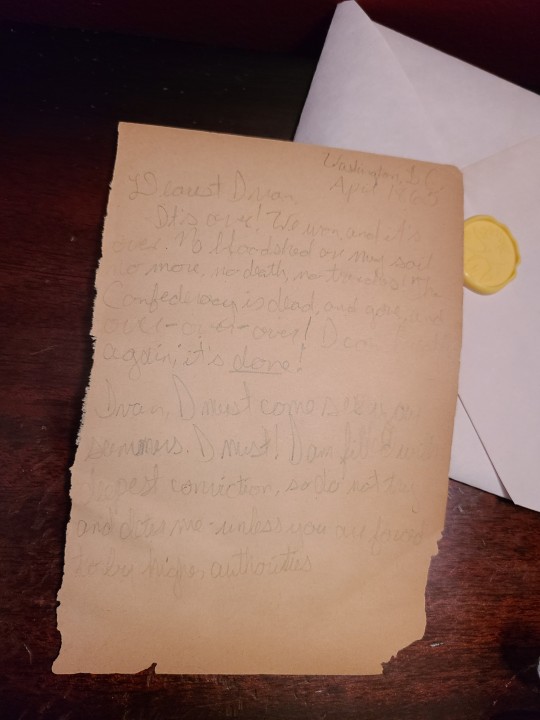 Washington, D.C.
April 1865
Dearest Ivan,
It's over! We won, and it's
over. No bloodshed on my soil
no more, no death, no The
Confederacy is dead, and gone, and
over-over-over! I am
again, it's done!
Ivan, I must come
summers. I must! I am filled
deepest conviction, so do not try
and deter me - unless you are forced
to by higher authorities